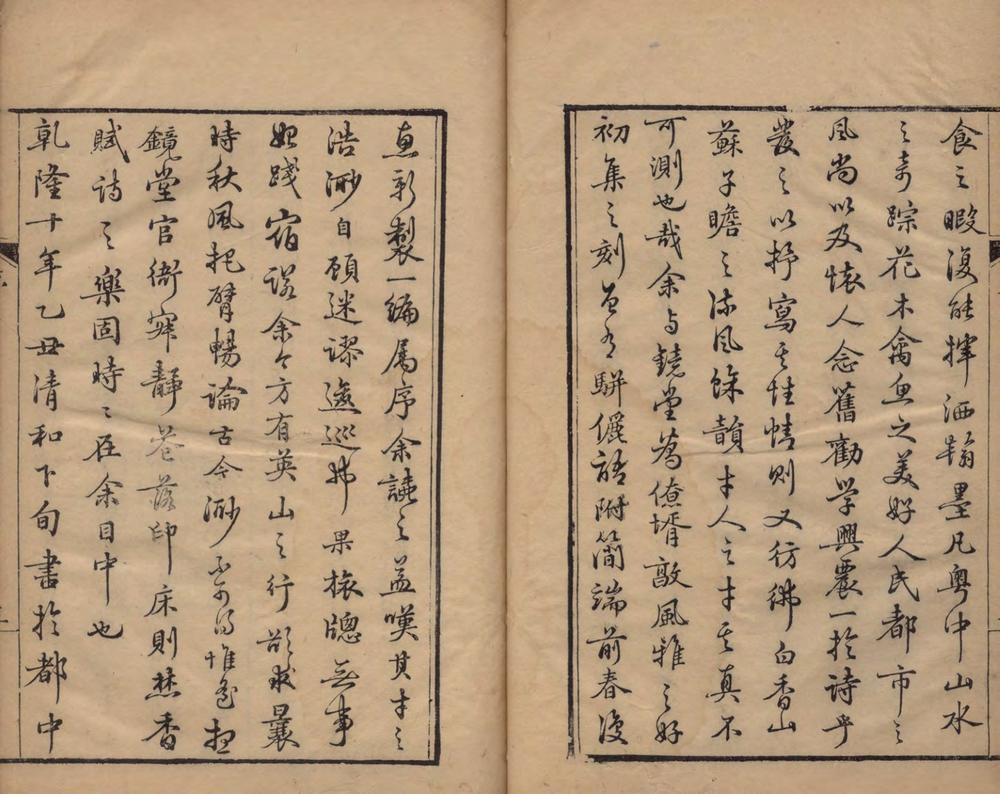 食之暇復能揮洒翰墨凡粵中山水
之奇踪花木禽魚之美好人民都市之
風尚以及懷人念舊勸學興農一於詩乎
發之以抒寫其性情則又彷彿白香山
蘇子瞻之流風餘韻才人之才其真不
可測也哉余與鏡堂為僚壻敦風雅之好
初集之刻曾有駢儷語附簡端前春復
惠新製一編属序余讀之益嘆其才之
浩渺自顧迷謬逡巡弗果旅牕無事
始踐宿諾余今方有英山之行欲求曩
時秋風把臂暢論古今渺不可得惟念
鏡堂官衙寂靜卷落印床則焚香
賦詩之樂固時〻在余目中也
乾隆十年乙丑清和下旬書於都中